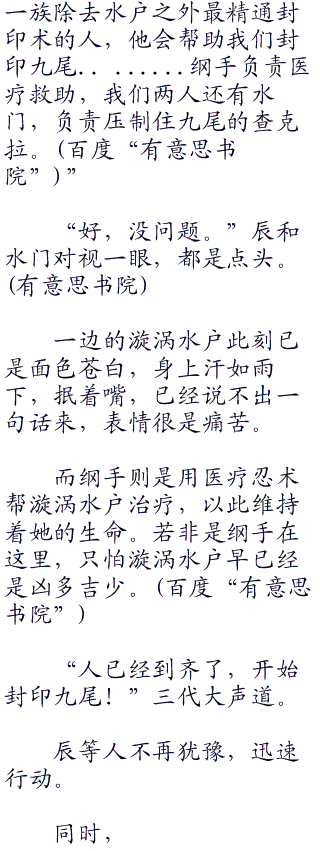 一族除去水户之外最精通封
印术的人，他会帮助我们封
印九尾．．．．．．．．纲手负责医
疗救助，我们两人还有水
门，负责压制住九尾的查克
拉。(百度“有意思书
院”)”
“好，没问题。”辰和
水门对视一眼，都是点头。
(有意思书院)
一边的漩涡水户此刻已
是面色苍白，身上汗如雨
下，抿着嘴，已经说不出一
句话来，表情很是痛苦。
而纲手则是用医疗忍术
帮漩涡水户治疗，以此维持
着她的生命。若非是纲手在
这里，只怕漩涡水户早已经
是凶多吉少。(百度“有意思
书院”)
“人已经到齐了，开始
封印九尾！”三代大声道。
辰等人不再犹豫，迅速
行动。
同时，